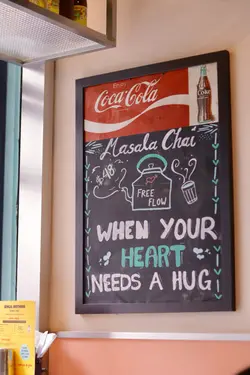 Enjoy
Coca-Cola
Coke
Masala Chai
FREE
FLOW
WHEN YOUR
HEART
NEEDS A HUG